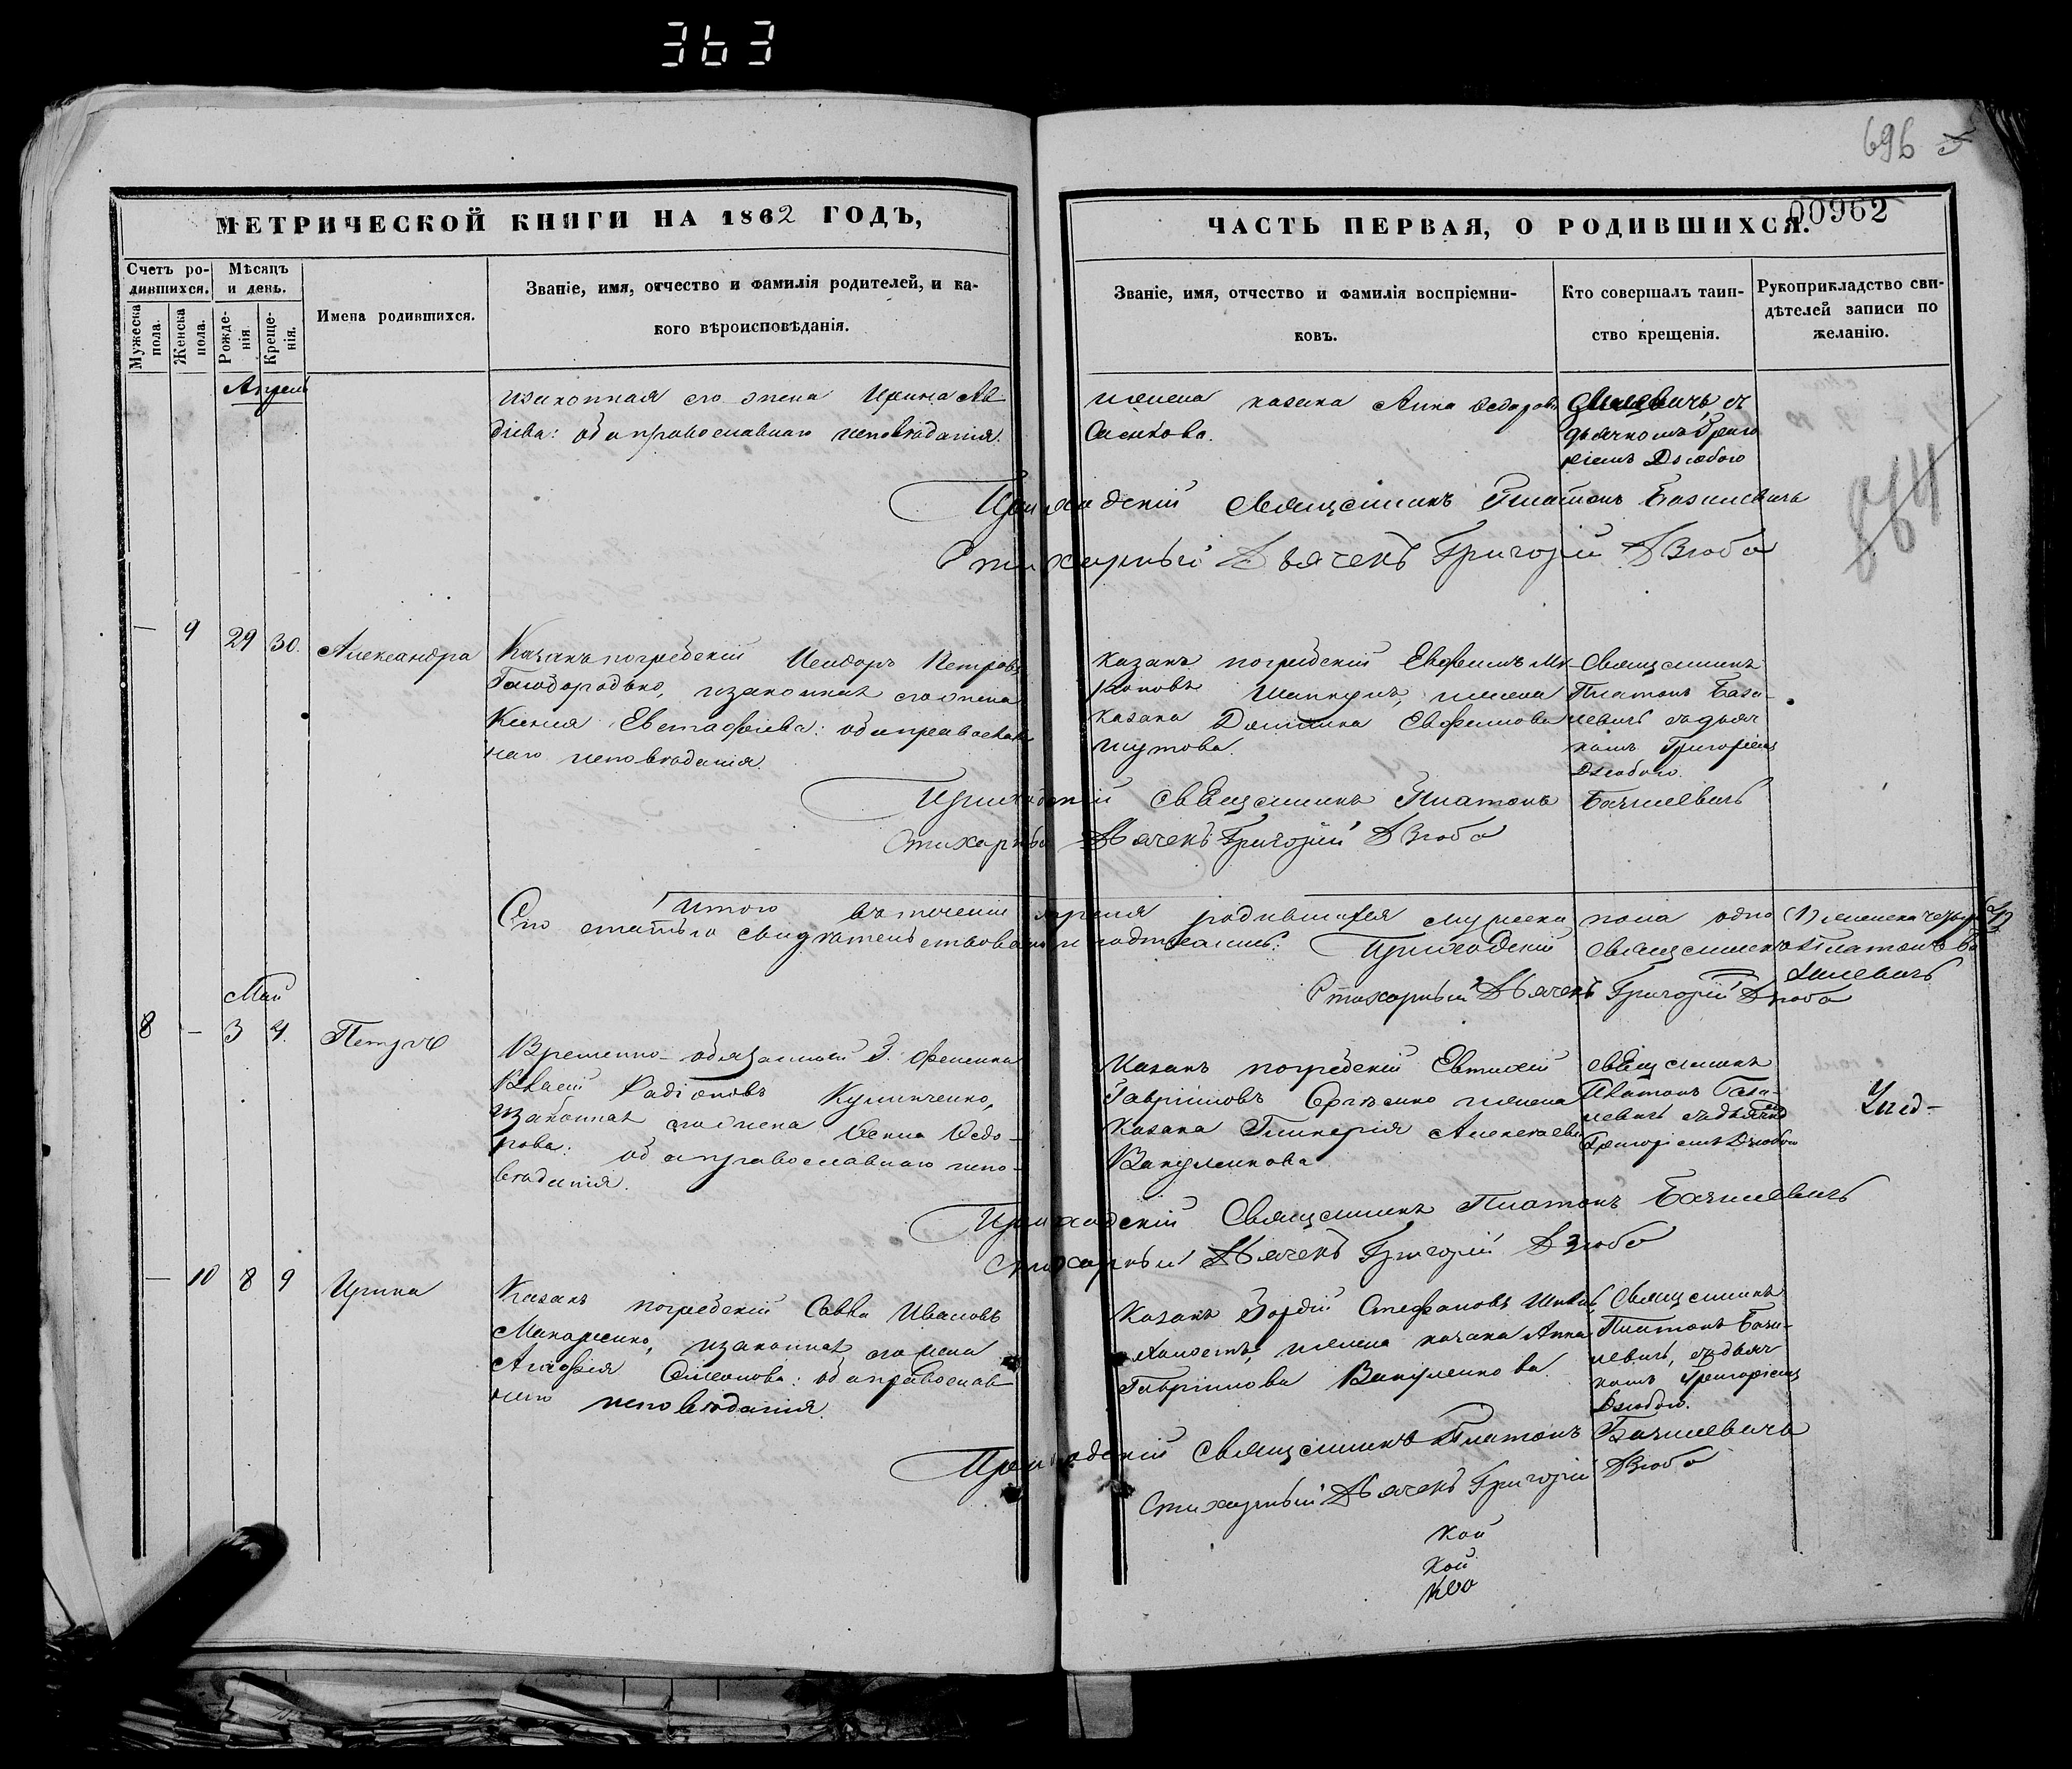 363
696
00962
МЕТРИЧЕСКОЙ КНИГИ НА 1862 ГОДЪ,
Счетъ ро-
дившихся.
Мѣсяцъ
и день.
Мужеска
пола.
Женска
пола.
Рожде-
нія.
Креще-
нія.
Имена родившихся.
Званіе, имя, отчество и фамилія родителей, и ка-
кого вѣроисповѣданія.
ЧАСТЬ ПЕРВАЯ, О РОДИВШИХСЯ.
Званіе, имя, отчество и фамилія воспріемни-
ковъ.
Кто совершалъ таин-
ство крещенія.
Рукоприкладство сви-
дѣтелей записи по
желанію.
Апрель
изаконная его жена Ирина Ав
діева: оба православнаго исповѣданія.
жена казака Анна Федорова
дьячкомъ Григо
ріемъ Дзюбою
Приходскій Священникъ Платонъ Базилевичъ
Стихарный Дьячекъ Григорій Дзюба
— 9 29 30. Александра
Казакъ погребскій Исидоръ Петровъ
изаконная его жена
Ксенія Евстафіева: оба православ
наго исповѣданія.
Казакъ погребскій Евфимъ Ми
роновъ жена
казака Домникія Евфимова
Шутова.
Священникъ
Платонъ Бази-
левичъ здьяч
комъ Григоріемъ
Дзюбою.
Приходскій священникъ Платонъ Базилевичъ
Стихарный Дьячекъ Григорій Дзюба
Итого втеченіи Апреля родившихся мужеска пола одно (1) женска четыре
Сію статью свидѣтельствовали и подписались: Приходскій священникъ Платонъ Ба
зилевичъ
Стихарный Дьячекъ Григорій Дзюба
Май
8 — 3 4. Петръ
Временно-обязанный
Радіоновъ Куличенко,
изаконная его жена Ксенія Федо-
рова: оба православнаго испо-
вѣданія.
Казакъ погребскій Евтихій
Гавріиловъ Сергѣенко жена
казака Гликерія Алексѣева
Вакуленкова
священникъ
Платонъ Бази-
левичъ здьячкомъ
Григоріемъ Дзюбою
Приходскій Священникъ Платонъ Базилевичъ
Стихарный Дьячекъ Григорій Дзюба
— 10 8 9 Ирина
Казакъ погребскій Савва Ивановъ
Макаренко, изаконная его жена
Агафія Симеонова: оба православ
наго исповѣданія.
Казакъ Гордій Стефановъ
жена казака Анна
Гавріилова Вакуленкова.
Священникъ
Платонъ Бази-
левичъ, здьяч
комъ Григоріемъ
Дзюбою.
Приходскій Священникъ Платонъ Базилевичъ
Стихарный Дьячекъ Григорій Дзюба
кой
кой